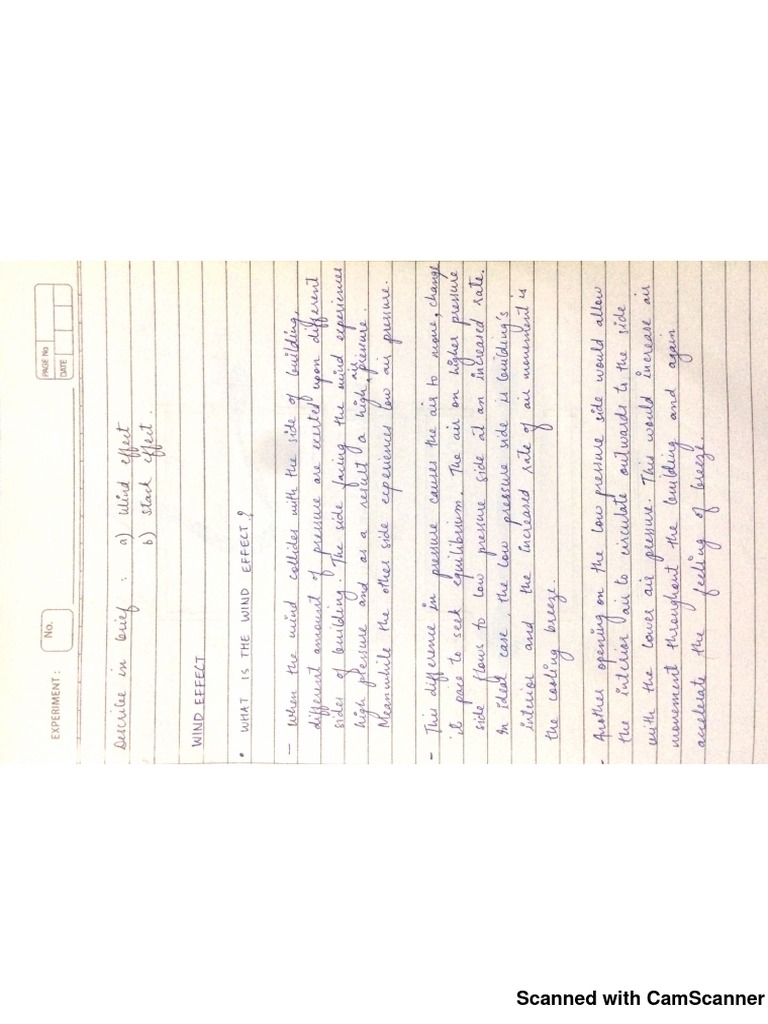 PAGE No
DATE
EXPERIMENT :
No.
Describe in brief : a) Wind effect
b) Stack effect.
WIND EFFECT
• WHAT IS THE WIND EFFECT?
- When the wind collides with the side of building,
different amount of pressure are exerted upon different
sides of building. The side facing the wind experiences
high pressure and as a result a high air pressure.
Meanwhile the other side experiences low air pressure.
- This difference in pressure causes the air to move, change
it pace to seek equilibrium. The air on higher pressure
side flows to low pressure side at an increased rate.
In ideal case, the low pressure side is building's
interior and the increased rate of air movement is
the cooling breeze.
- Another opening on the low pressure side would allow
the interior air to circulate outwards to the side
with the lower air pressure. This would increase air
movement throughout the building and again
accelerate the feeling of breeze.
Scanned with CamScanner